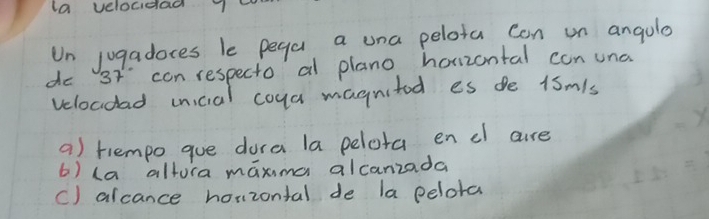 la velocidad y
Un jugadores le pega a una pelota con un angulo
de 37° con respecto al plano horizontal con una
velocidad inicial coya magnitod es de 15m/s
a) tiempo que dura la pelota en el aire
b) la altura máxima alcanzada
c) alcance horizontal de la pelota